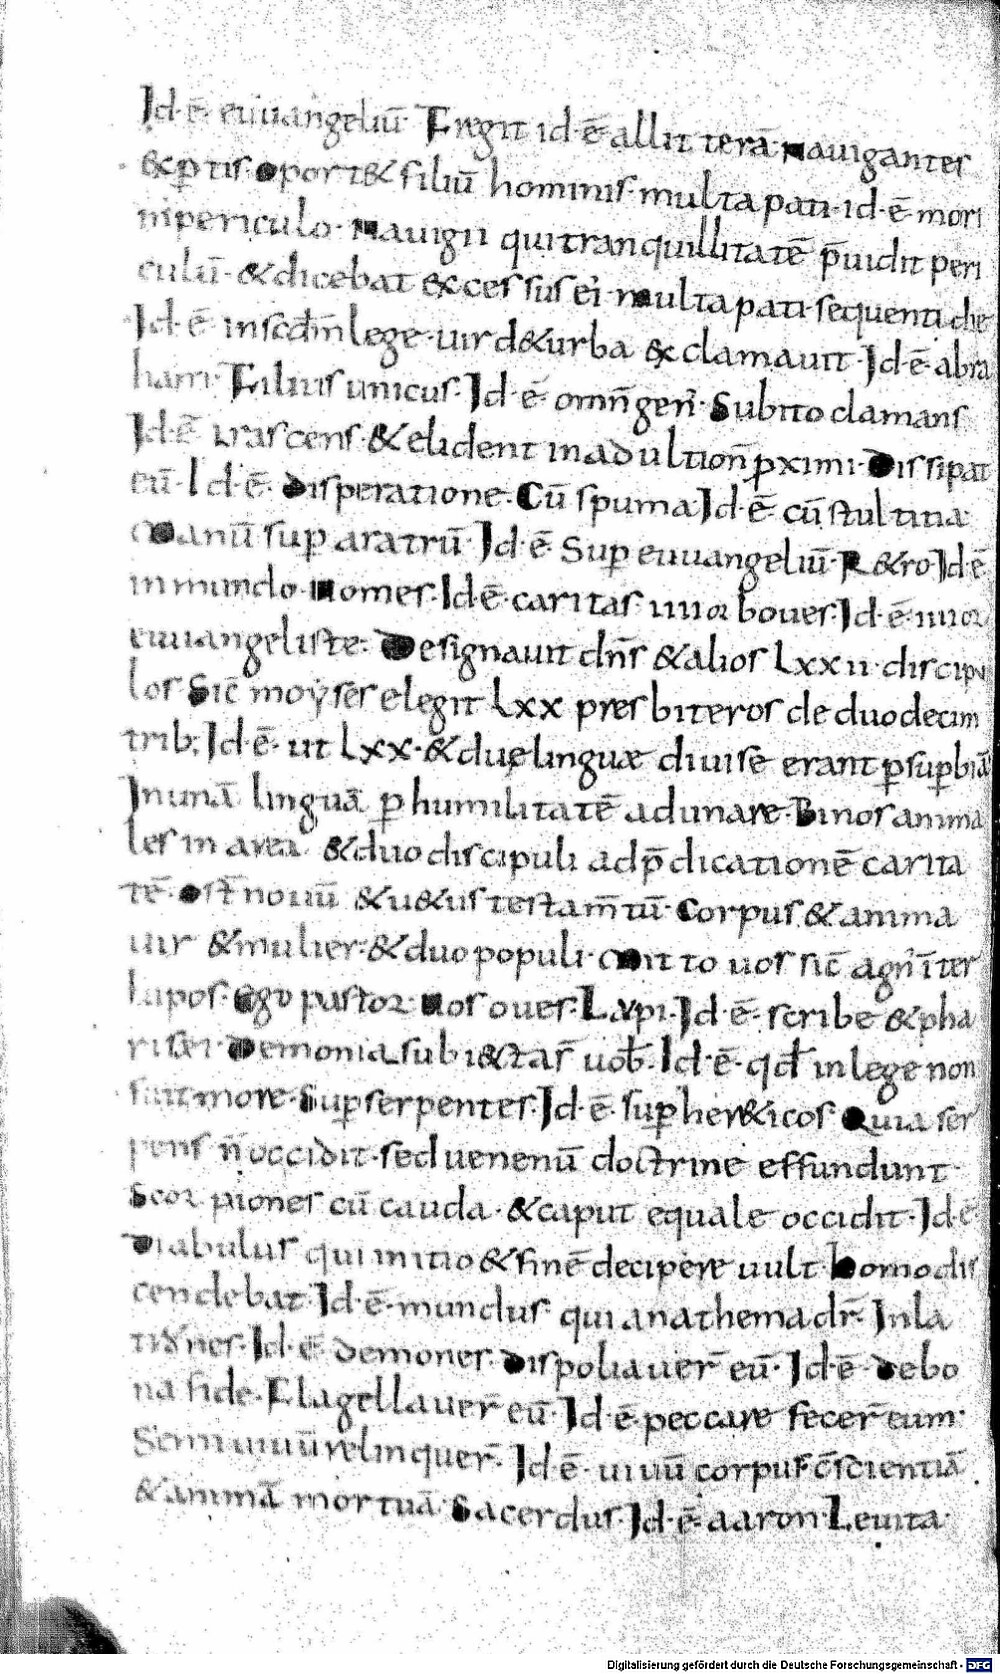 Id·ē· euuangeliū· Fregit id·ē· allit terā· nauigantes
&ꝑtis· oport& filiū hominis· multa pati· id·ē· mori
inpericulo· Nauigii qui tranquillitatē p̄uidit peri
culū· &dicebat excessus ei· multa pati· sequenti die
Id·ē· insc̄dm̄ lege· uir d&urba exclamauit· Id·ē· abra
ham· Filius unicus· Id·ē· omn̄ gen̄· Subito clamans
Id·ē· irascens· &elident inadultion̄ ꝓximi· Dissipat
eū· Id·ē· disperatione· Cū spuma· Id·ē· cū stultitia
Manū suꝑ aratrū· Id·ē· Suꝑ euuangeliū· R&ro· Id·ē
in mundo· Nomes· Id·ē· caritas· iiiior boues· Id·ē· iiiior
euuangeliste· Designauit dn̄s &alios Lxxii· discipu
los· Sic̄ moyses elegit Lxx presbiteros de duodecim
trib; Id·ē· ut Lxx· &duę linguæ diuise erant ꝑsuꝑbiā
Inunā linguā ꝑhumilitatē adunare· Binos anima
les in area &duo discipuli adp̄dicationē carita
tē· ost̄ nouū &u&us testam̄tū· Corpus &anima
uir &mulier· &duo populi· Mitto uos sic̄ agn̄ īter
lupos· Ego pastor· Uos oues· Lupi· Id·ē· scribe &pha
risæi· Demonia subi&tas uob̄· Id·ē· qd̄ inlege non
fuit more· Suꝑ serpentes· Id·ē· suꝑ her&icos· Quia ser
pens n̄ occidit· sed uenenū doctrine effundunt·
Scorpiones cū cauda· &caput equale occidit· Id·ē
Diabulus qui initio &finē decipere uult· homo dis
cendebat· Id·ē· mundus qui anathema dr̄· In la
trones· Id·ē· demones· Dispoliauer̄ eū· Id·ē· debo
na fide· Flagellauer̄ eū· Id·ē· peccare fecer̄ eum·
Semiuiuū relinquer̄· Id·ē· uiuū corpus c̄scientiā
&animā mortuā· Sacerdus· Id·ē· aaron· Leuita·
Digitalisierung gefördert durch die Deutsche Forschungsgemeinschaft - DFG